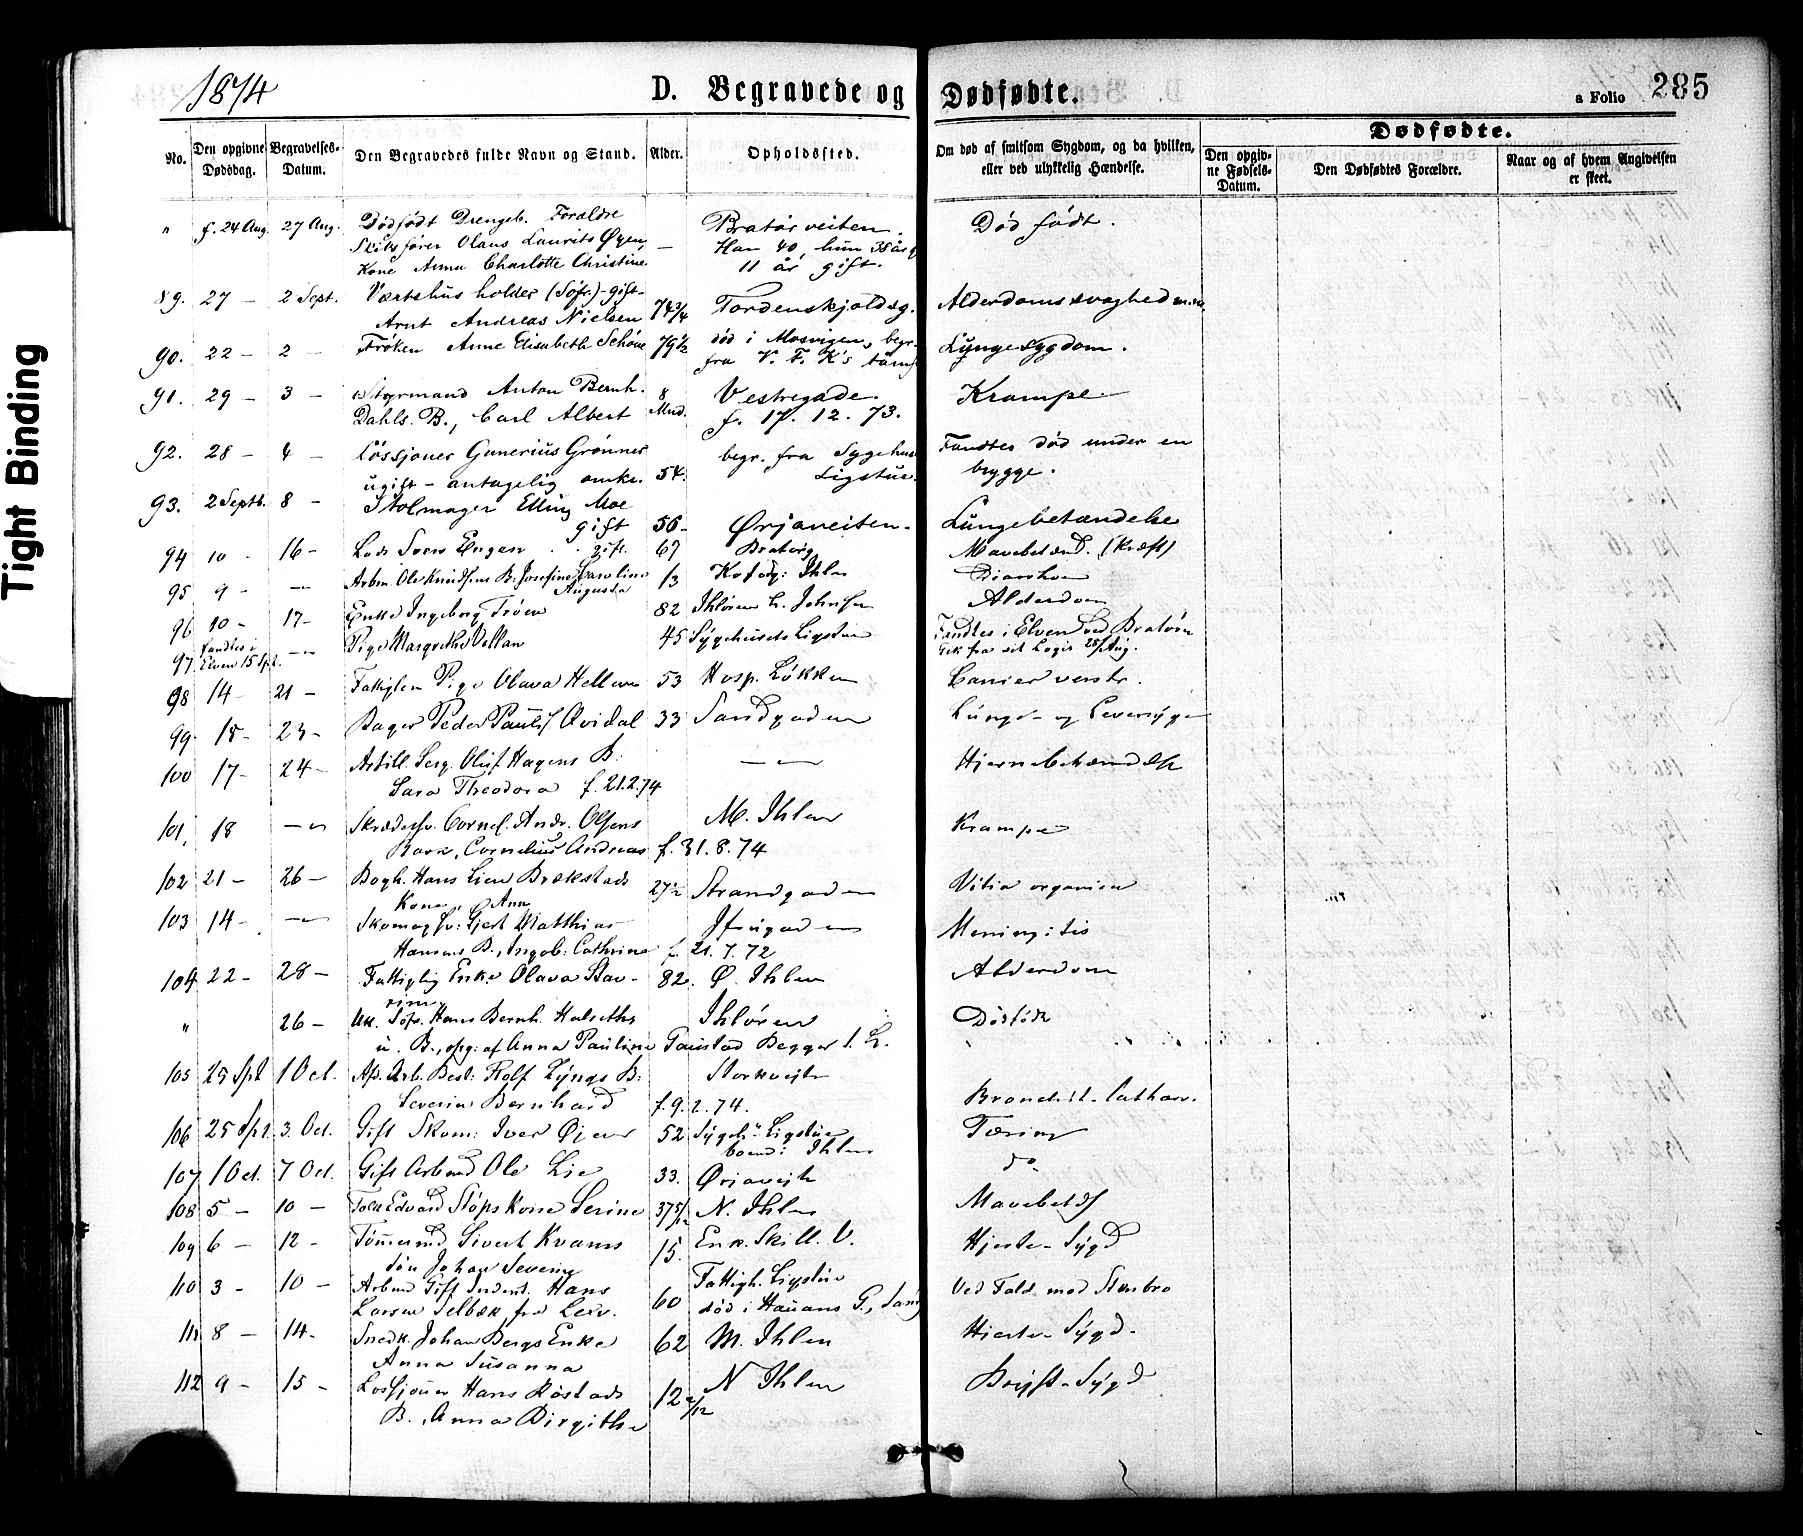 Tight Binding
1874
D. Begravede og Dødfødte.
a Folio 285
No.
Den opgivne Dødsdag.
Begravelses-Datum.
Den Begravedes fulde Navn og Stand.
Alder.
Opholdssted.
Om død af smitsom Sygdom, og da hvilken, eller ved ulykkelig Hændelse.
Dødfødte.
Den opgivne Fødsels-Datum.
Den Dødfødtes Forældre.
Naar og af hvem Angivelsen er skeet.
" f. 24 Aug. 27 Aug. Dødfødt Drengeb. Forældre Bratørveiten. Død født.
Olaus Laurits Øyen, — Han 40, hun 38 år
Kone Anna Charlotte Christine 11 år gift.
89. 27 — 2 Sept. Værtshusholder (Søfr.) - gift - Tordenskjoldsg. Alderdomssvaghed m.m.
Arnt Andreas Nielsen 74 3/4
90. 22 — 2 — Frøken Anne Elisabeth Schöne 79 1/2 død i Mosvigen, begr. Lungesygdom.
fra V. F. K's
91. 29 — 3 — Styrmand Anton Bernh. 8 Vestregade. Krampe.
Dahls B., Carl Albert Mnd. f. 17. 12. 73.
92. 28 — 4 — Løssjouer Gunerius Grønner begr. fra Sygehus Fandtes død under en
ugift — antagelig enke. 54. Ligstue. brygge.
93. 2 Septb. 8 — Stolmager Elling Moe
gift 56 — Ørjaveiten. Lungebetændelse
94 10 - 16 — Lods Sven Engen gift. 67 Bratørg Mavebetænd. (Kræft)
95 9 - — Arbm Ole Knudsens B. Josefine Caroline 13 Ihlen Diarrhoe
Augusta
96 10 — 17 — Enke Ingeborg Trøen 82 Ihløren h. Johnsen Alderdom
97. fandtes i — Pige Margrethe Vollan 45 Sygehusets Ligstue Fandtes i Elven ved Bratøren
Elven 15 Spt. Gik fra sit Logis 25/Aug.
98 14 - 21 — Fattiglem Pige Olava Hellem 53 Hosp. Løkken
99 18 - 23 — Bager Peder Pauls. Qvidal 33 Sandgaden Lunge- og Leversyge
100 17 - 24 — Artill. Serg. Oluf Hagens B: — Hjernebetændelse
Sara Theodora f. 21.2.74
101, 18 — Skræddersv. Cornel. Andr. Olsens M. Ihlen Krampe
Barn, Cornelius Andreas f. 31. 8. 74
102 21 — 26 — Bogh. Hans Lien Brækstads 27 1/2 Strandgaden Vitia organica
Kone, Ann
103 14 — — Skomagsv: Gjert Matthias Meningitis
Hansens B., Ingeb: Cathrine f. 21. 7. 72
104 22 — 28 — Fattiglig Enke Olava Sav- 82. Ø. Ihlen Alderdom
rim
" 26 — Uk. Søfr. Hans Bernh. Halseths Ihløren Dødfødt
u. B., opg: af Anna Pauline Gaustad Begger l. L.
105 25 Spt 1 Oct. Afs. Arb. Best: Rolf Lyngs B: Storkveite
Severin Bernhard f. 9. 2. 74. Bronchit. Cathar.
106 25 Spt. 3. Oct. Gift Skom: Iver Øjen 52 Sygeh. Ligstue Tæring
boend: Ihlen
107 1 Oct. 7 Oct. Gift Arbmd Ole Lie 33. Ørjaveite do
108 5 — 10 — Edvard Støps Kone Serine 37 5/12 N. Ihlen Mavebetds
109 6 — 12 - Tømmermd Sivert Kvams 15. Enk. Skill. V. Hjerte-Sygd
Søn Johan Severin
110 3 — 10 — Arbmd Gift Inderst. Hans Fattigh. Ligstue Ved Fald mod Stenbro
Larsen Selbæk fra Lexv. 60 død i G.,
111 8 — 14 - Snedk. Johan Bergs Enke 62 M. Ihlen Hjerte-Sygd.
Anna Susanna
112 9 - 15 — Løssjouer Hans Røstads 12 2/12 N Ihlen Bryst-Sygd
B., Anna Birgitha